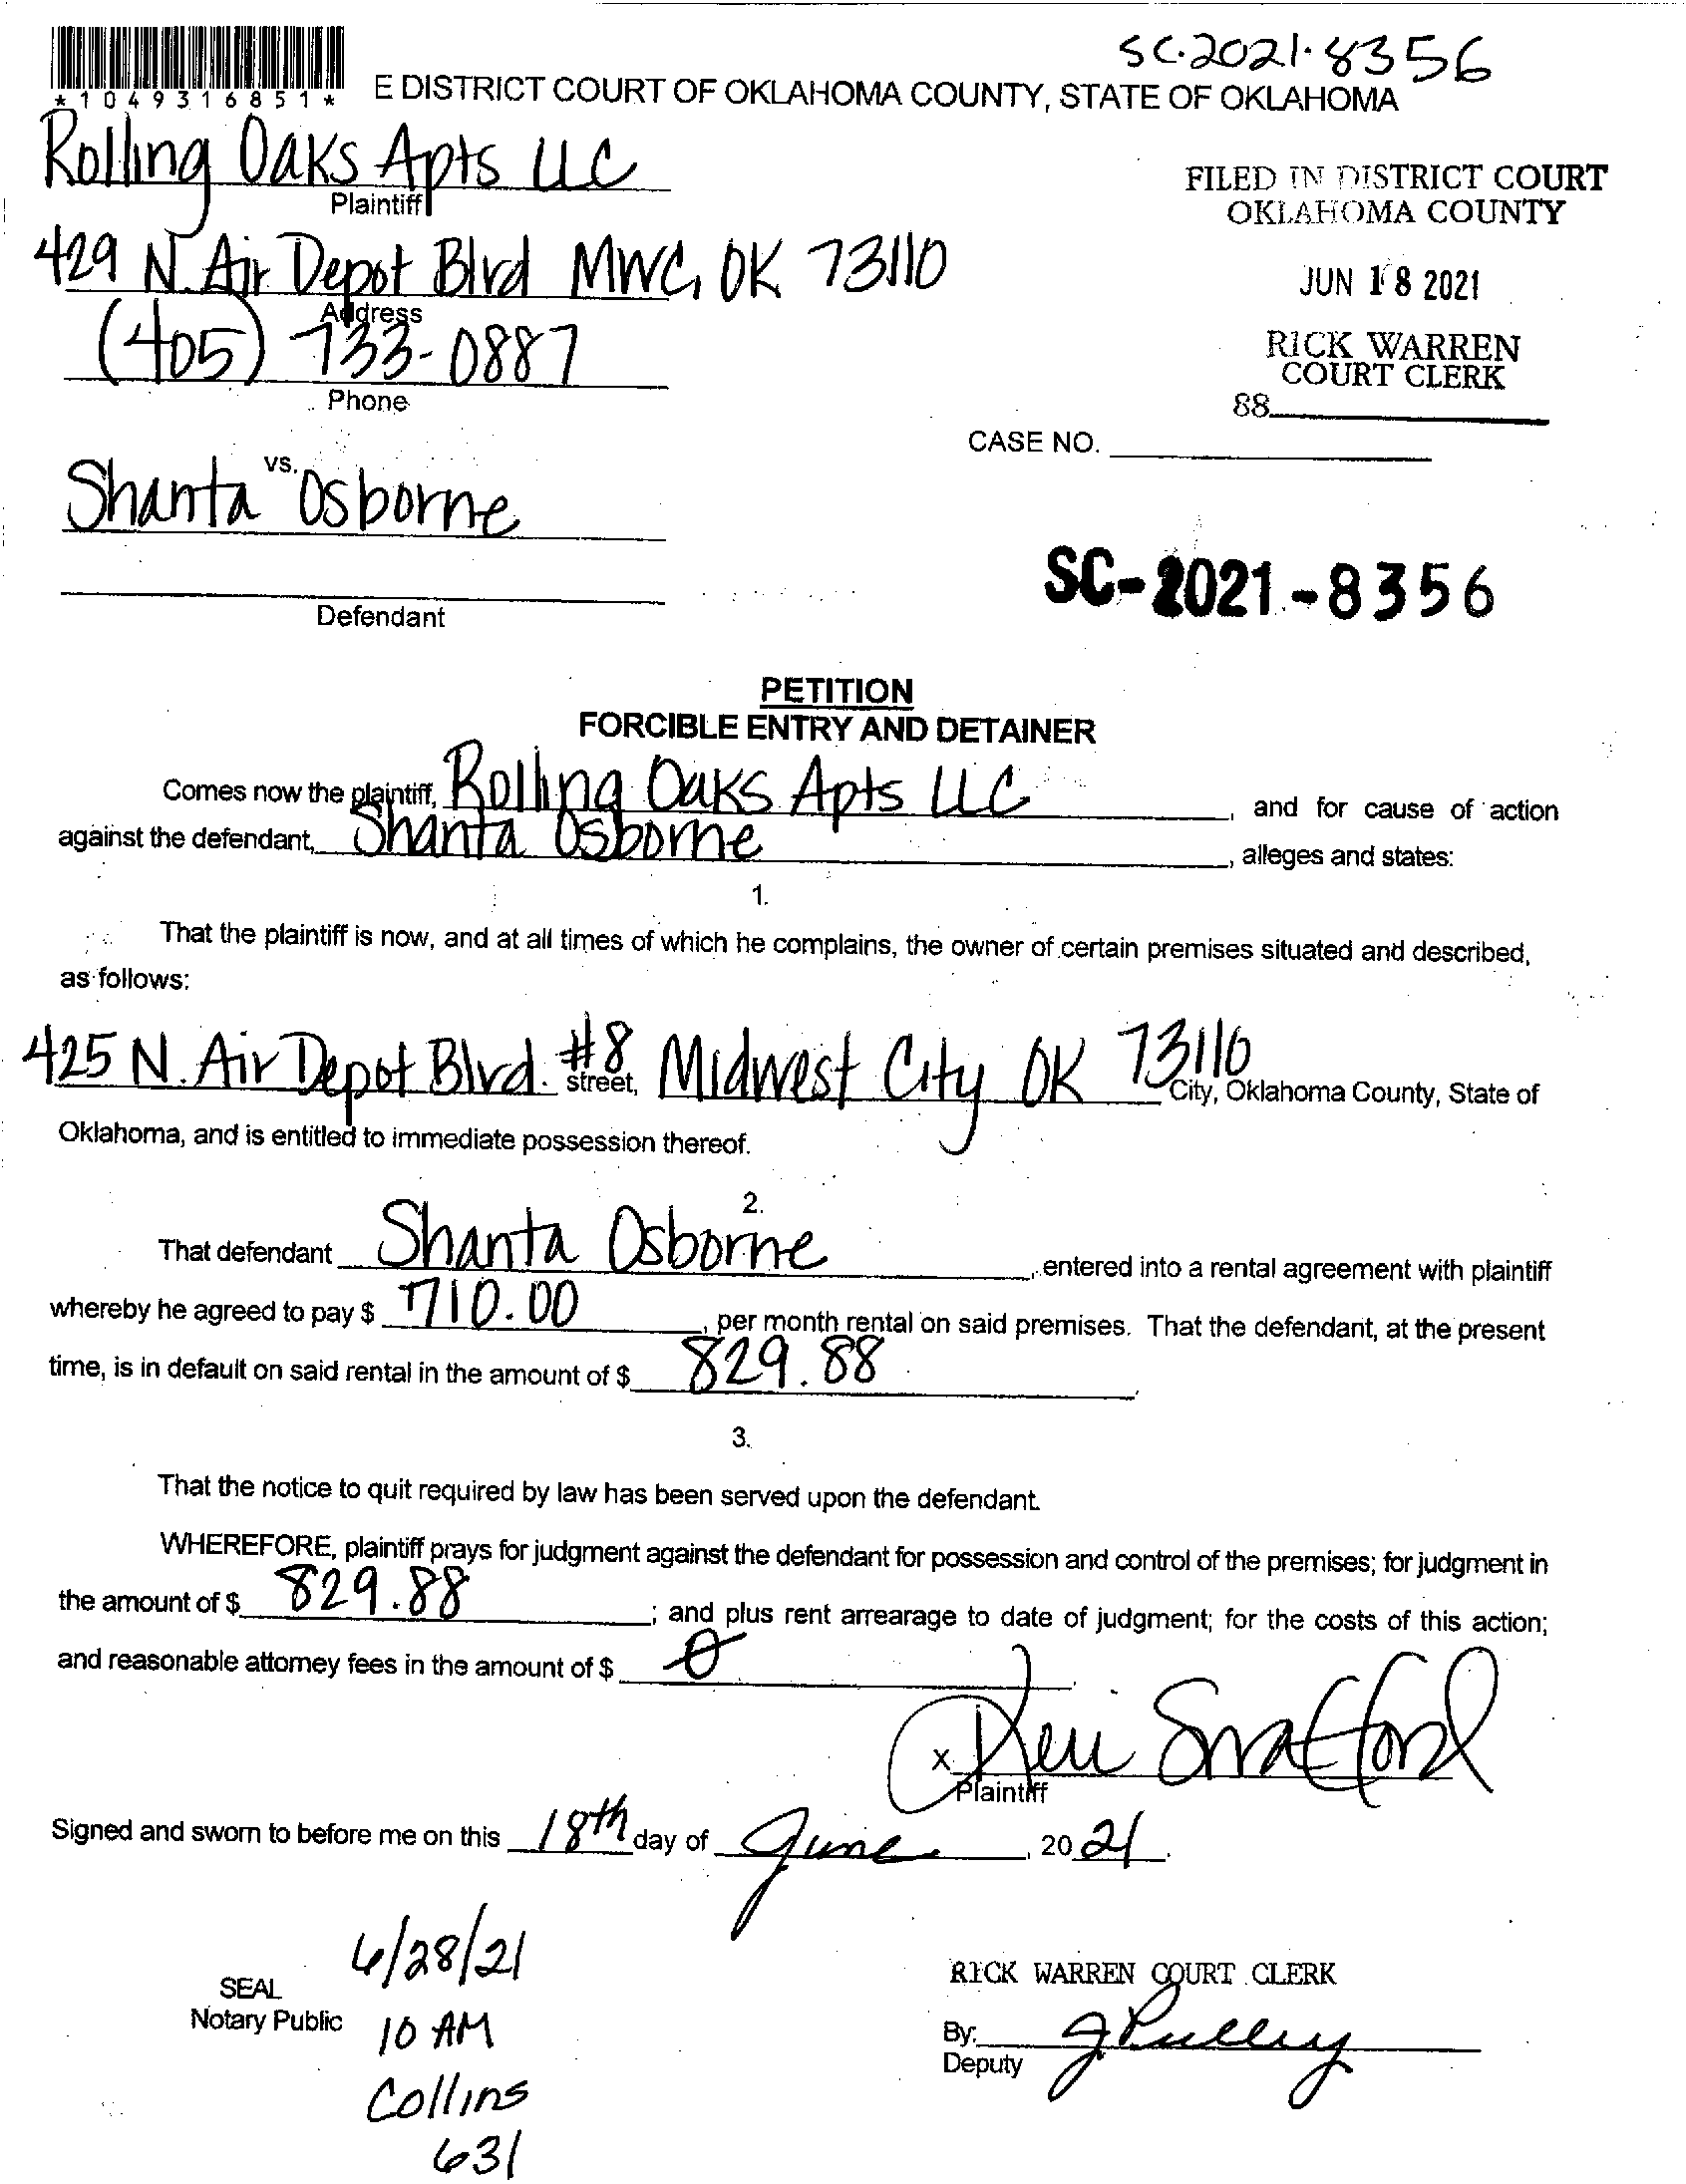 SC-2021-8356
*1049316851*
E DISTRICT COURT OF OKLAHOMA COUNTY, STATE OF OKLAHOMA
Rolling Oaks Apts LLC
Plaintiff
FILED IN DISTRICT COURT
OKLAHOMA COUNTY
429 N. Air Depot Blvd MWC, OK 73110
Address
JUN 18 2021
(405) 733-0887
Phone
RICK WARREN
COURT CLERK
88
CASE NO.
vs.
Shanta Osborne
Defendant
SC-2021-8356
PETITION
FORCIBLE ENTRY AND DETAINER
Comes now the plaintiff, Rolling Oaks Apts LLC, and for cause of action
against the defendant, Shanta Osborne, alleges and states:
1.
That the plaintiff is now, and at all times of which he complains, the owner of certain premises situated and described,
as follows:
425 N. Air Depot Blvd. #8 street, Midwest City OK 73110 City, Oklahoma County, State of
Oklahoma, and is entitled to immediate possession thereof.
2.
That defendant Shanta Osborne, entered into a rental agreement with plaintiff
whereby he agreed to pay $ 710.00, per month rental on said premises. That the defendant, at the present
time, is in default on said rental in the amount of $ 829.88.
3.
That the notice to quit required by law has been served upon the defendant.
WHEREFORE, plaintiff prays for judgment against the defendant for possession and control of the premises; for judgment in
the amount of $ 829.88; and plus rent arrearage to date of judgment; for the costs of this action;
and reasonable attorney fees in the amount of $ 0.
X
Plaintiff
Signed and sworn to before me on this 18th day of June, 2021.
6/28/21
SEAL
Notary Public
10 AM
Collins
631
RICK WARREN COURT CLERK
By: J Pulley
Deputy